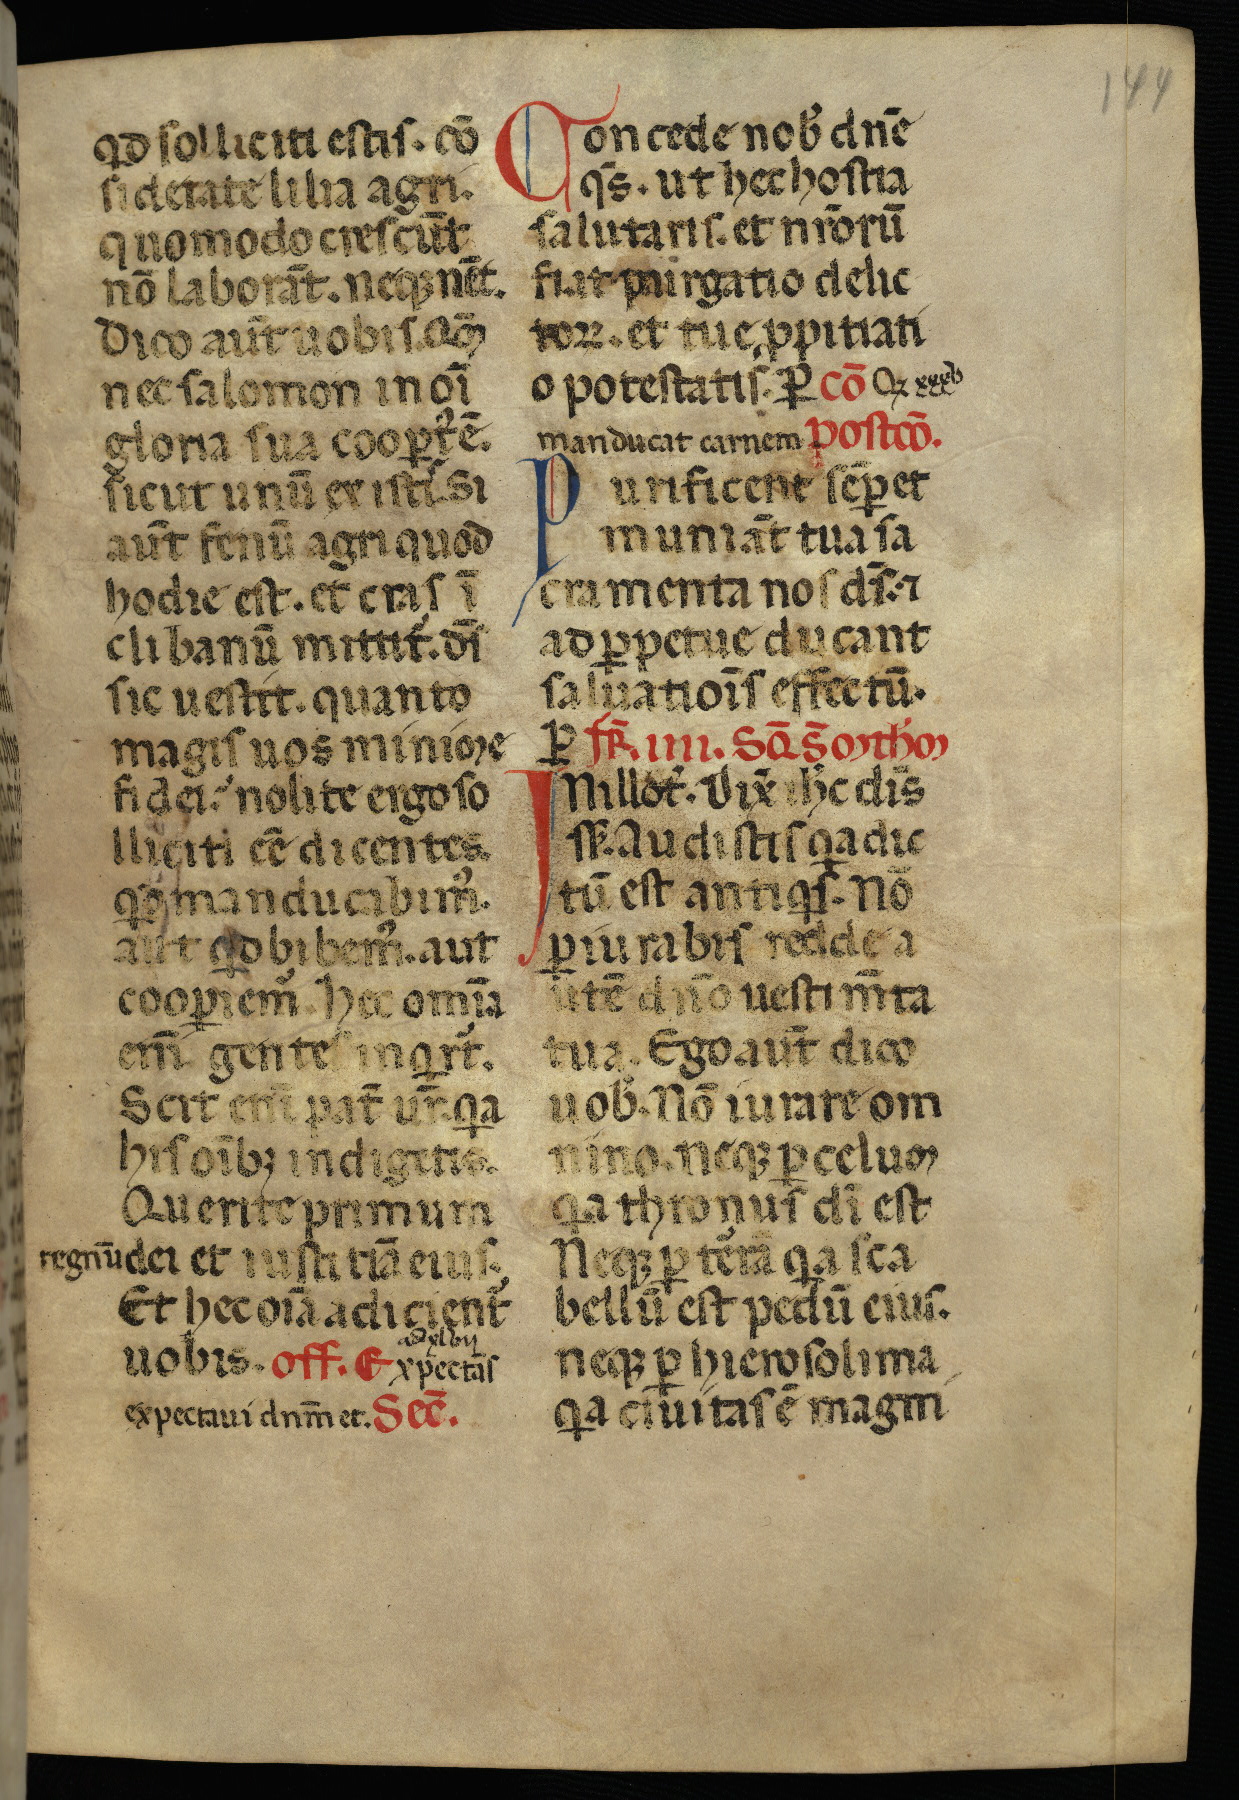 144
qd solliciti estis. cō
siderate lilia agri.
quomodo crescūt
nō laborāt. neqꝫ nēt.
Dico aūt uobis. Qm̄
nec salomon in oī
gloria sua coop̱tꝰ ē.
sicut unū ex istis. Si
aūt fenū agri quod
hodie est. et cras ī
clibanū mittit᷑. dīs
sic uestit. quanto
magis uos minime
fidei? nolite ergo so
lliciti eē dicentes.
qd manducabimꝰ.
aut qd bibemꝰ. aut
cooꝑiemꝰ. hec omīa
em̄ gentes inqrt̄.
Scit em̄ pat̄ ur̄. qa
his oībꝫ indigetis.
Querite primum
regnū dei et iustitiā eius.
Et hec oīa adicient᷑
uobis. off. Expectās
expectaui dnm̄ et. Sec̄.
Concede nob᷒ dn̄e
qs̄. ut hec hostia
salutaris. et nr̄orū
fiat purgatio delic
toꝝ. et tue ꝓpitiati
o potestatis. ꝑ cō Qi xxxb
manducat carnem postcō.
Purificent sēꝑ et
muniāt tua sa
cramenta nos dīs. ⁊
ad ꝑpetue ducant
saluatiōis effectū.
ꝑ fr̄. iiii. Sc̄d̄ m̄thm
In illo t᷑. Dix̄ ihc dīs
ss. Audistis qa dic
tū est antiqs. Nō
ꝑiurabis redde a
utē dn̄o uestim̄ta
tua. Ego aūt dico
uob᷒. Nō iurare om
nino. neqꝫ ꝑ celum
qa thronus dī est
Neqꝫ ꝑ terā qa sca
bellū est pedū eius.
neqꝫ ꝑ hierosolima
qa ciuitas ē magni